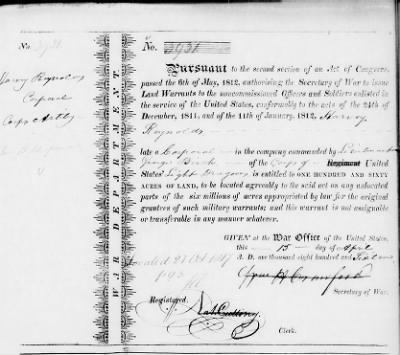 No. 3931
Harvy Reynolds
Corporal
Corps Artly
WAR DEPARTMENT
No. 3931
Pursuant to the second section of an Act of Congress,
passed the 6th of May, 1812, authorising the Secretary of War to issue
Land Warrants to the noncommissioned Officers and Soldiers enlisted in
the service of the United States, conformably to the acts of the 24th of
December, 1811, and of the 11th of January, 1812, Harvy
Reynolds
late a Corporal in the company commanded by Lieutenant
George Birch of the Corps of Regiment United
States' Light Dragoons is entitled to ONE HUNDRED AND SIXTY
ACRES OF LAND, to be located agreeably to the said act on any unlocated
part of the six millions of acres appropriated by law for the original
grantees of such military warrants; and this warrant is not assignable
or transferable in any manner whatever.
GIVEN at the War Office of the United States,
this 15 day of April
A. D. one thousand eight hundred and
Located 21 Oct 1817
Wm H Crawford
Secretary of War.
Registered.
Clerk.